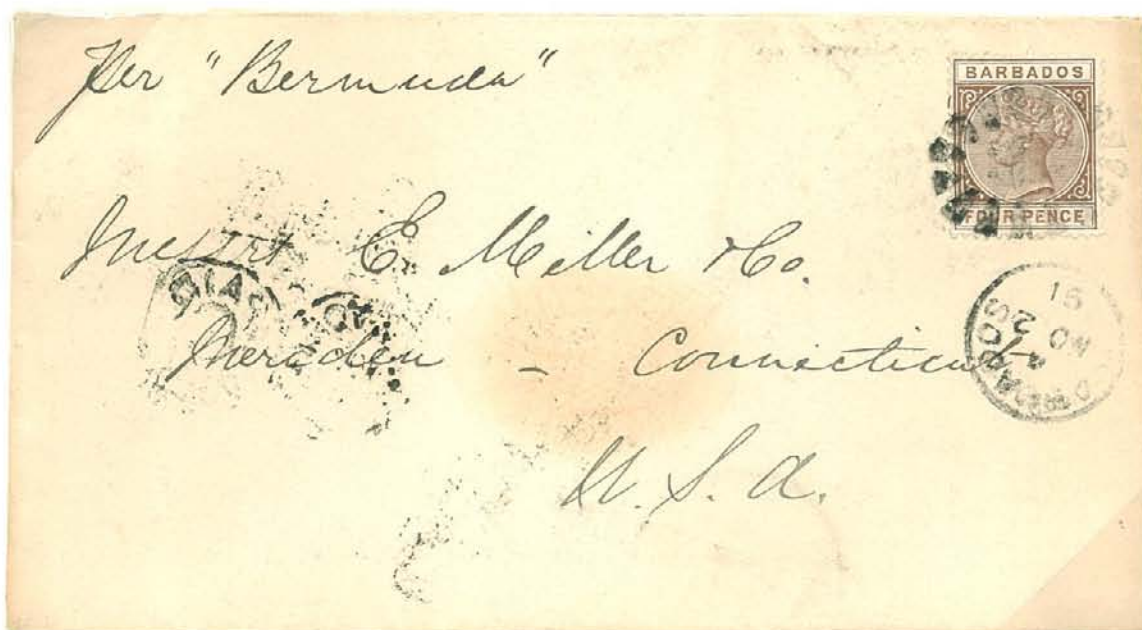 Per "Bermuda"
BARBADOS
FOUR PENCE
Messrs E. Miller & Co.
Meraden - Connecticut
U. S. A.
BARBADOS
91